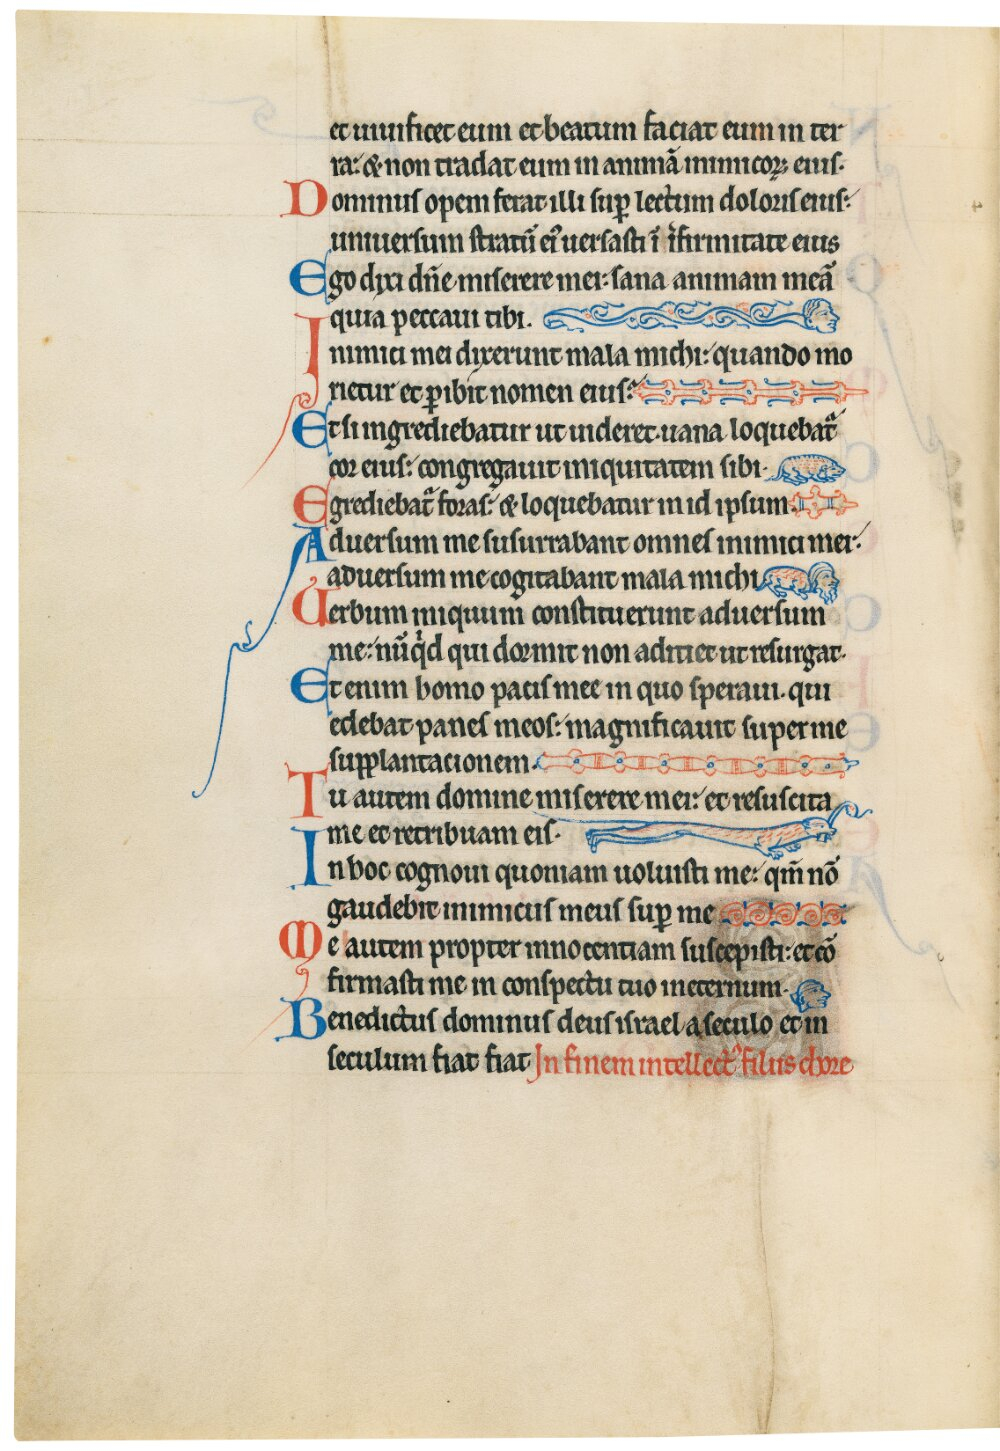 et uiuificet eum et beatum faciat eum in ter
ra: & non tradat eum in animā inimicoꝝ eius.
Dominus opem ferat illi suꝑ lectum doloris eius:
uniuersum stratū eiꝰ uersasti ī īfirmitate eius
Ego dixi dn̄e miserere mei: sana animam meā
quia peccaui tibi.
Inimici mei dixerunt mala michi: quando mo
rietur et ꝑibit nomen eius:
Et si ingrediebatur ut uideret. uana loquebat᷑
cor eius: congregauit iniquitatem sibi.
Egrediebat᷑ foras: & loquebatur in id ipsum.
Aduersum me susurrabant omnes inimici mei:
aduersum me cogitabant mala michi
Uerbum iniquum constituerunt aduersum
me: nū qͥd qui dormit non adiciet ut resurgat.
Etenim homo pacis mee in quo speraui. qui
edebat panes meos: magnificauit super me
supplantacionem.
Tu autem domine miserere mei: et resuscita
me et retribuam eis.
In hoc cognoui quoniam uoluisti me: qm̄ nō
gaudebit inimicus meus suꝑ me
Me autem propter innocentiam suscepisti: et cō
firmasti me in conspectu tuo in eternum.
Benedictus dominus deus israel a seculo et in
seculum fiat fiat In finem intellectꝰ filiis chore